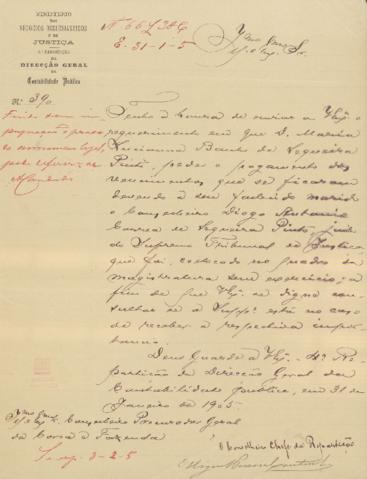 MINISTERIO
DOS
NEGOCIOS ECCLESIASTICOS
E DE
JUSTIÇA
4.ª REPARTIÇÃO
DA
DIRECÇÃO GERAL
DA
Contabilidade Publica
N.º 390
E. 31-1-5
Illmo Exmo Sr.
Tenho a honra de enviar a V. Exª o
requerimento em que D. Maria
Lucianna de Siqueira
Pinto, pede o pagamento dos
vencimentos que se ficaram
devendo a seu fallecido marido
o Conselheiro Diogo Antonio
Correa de Sequeira Pinto, juiz
do Supremo Tribunal de Justiça
que foi, collocado no quadro da
magistratura sem exercicio; a
fim de que V. Exª se digne con-
sultar se a Suppe está no caso
de receber a respectiva impor-
tancia.
Deus Guarde a V. Exª 4ª Re-
partição da Direcção Geral da
Contabilidade Publica, em 31 de
Janeiro de 1905
Illmo Exmo Sr. Conselheiro Procurador Geral
da Corôa e Fazenda
O Conselheiro Chefe da Repartição
3-2-5